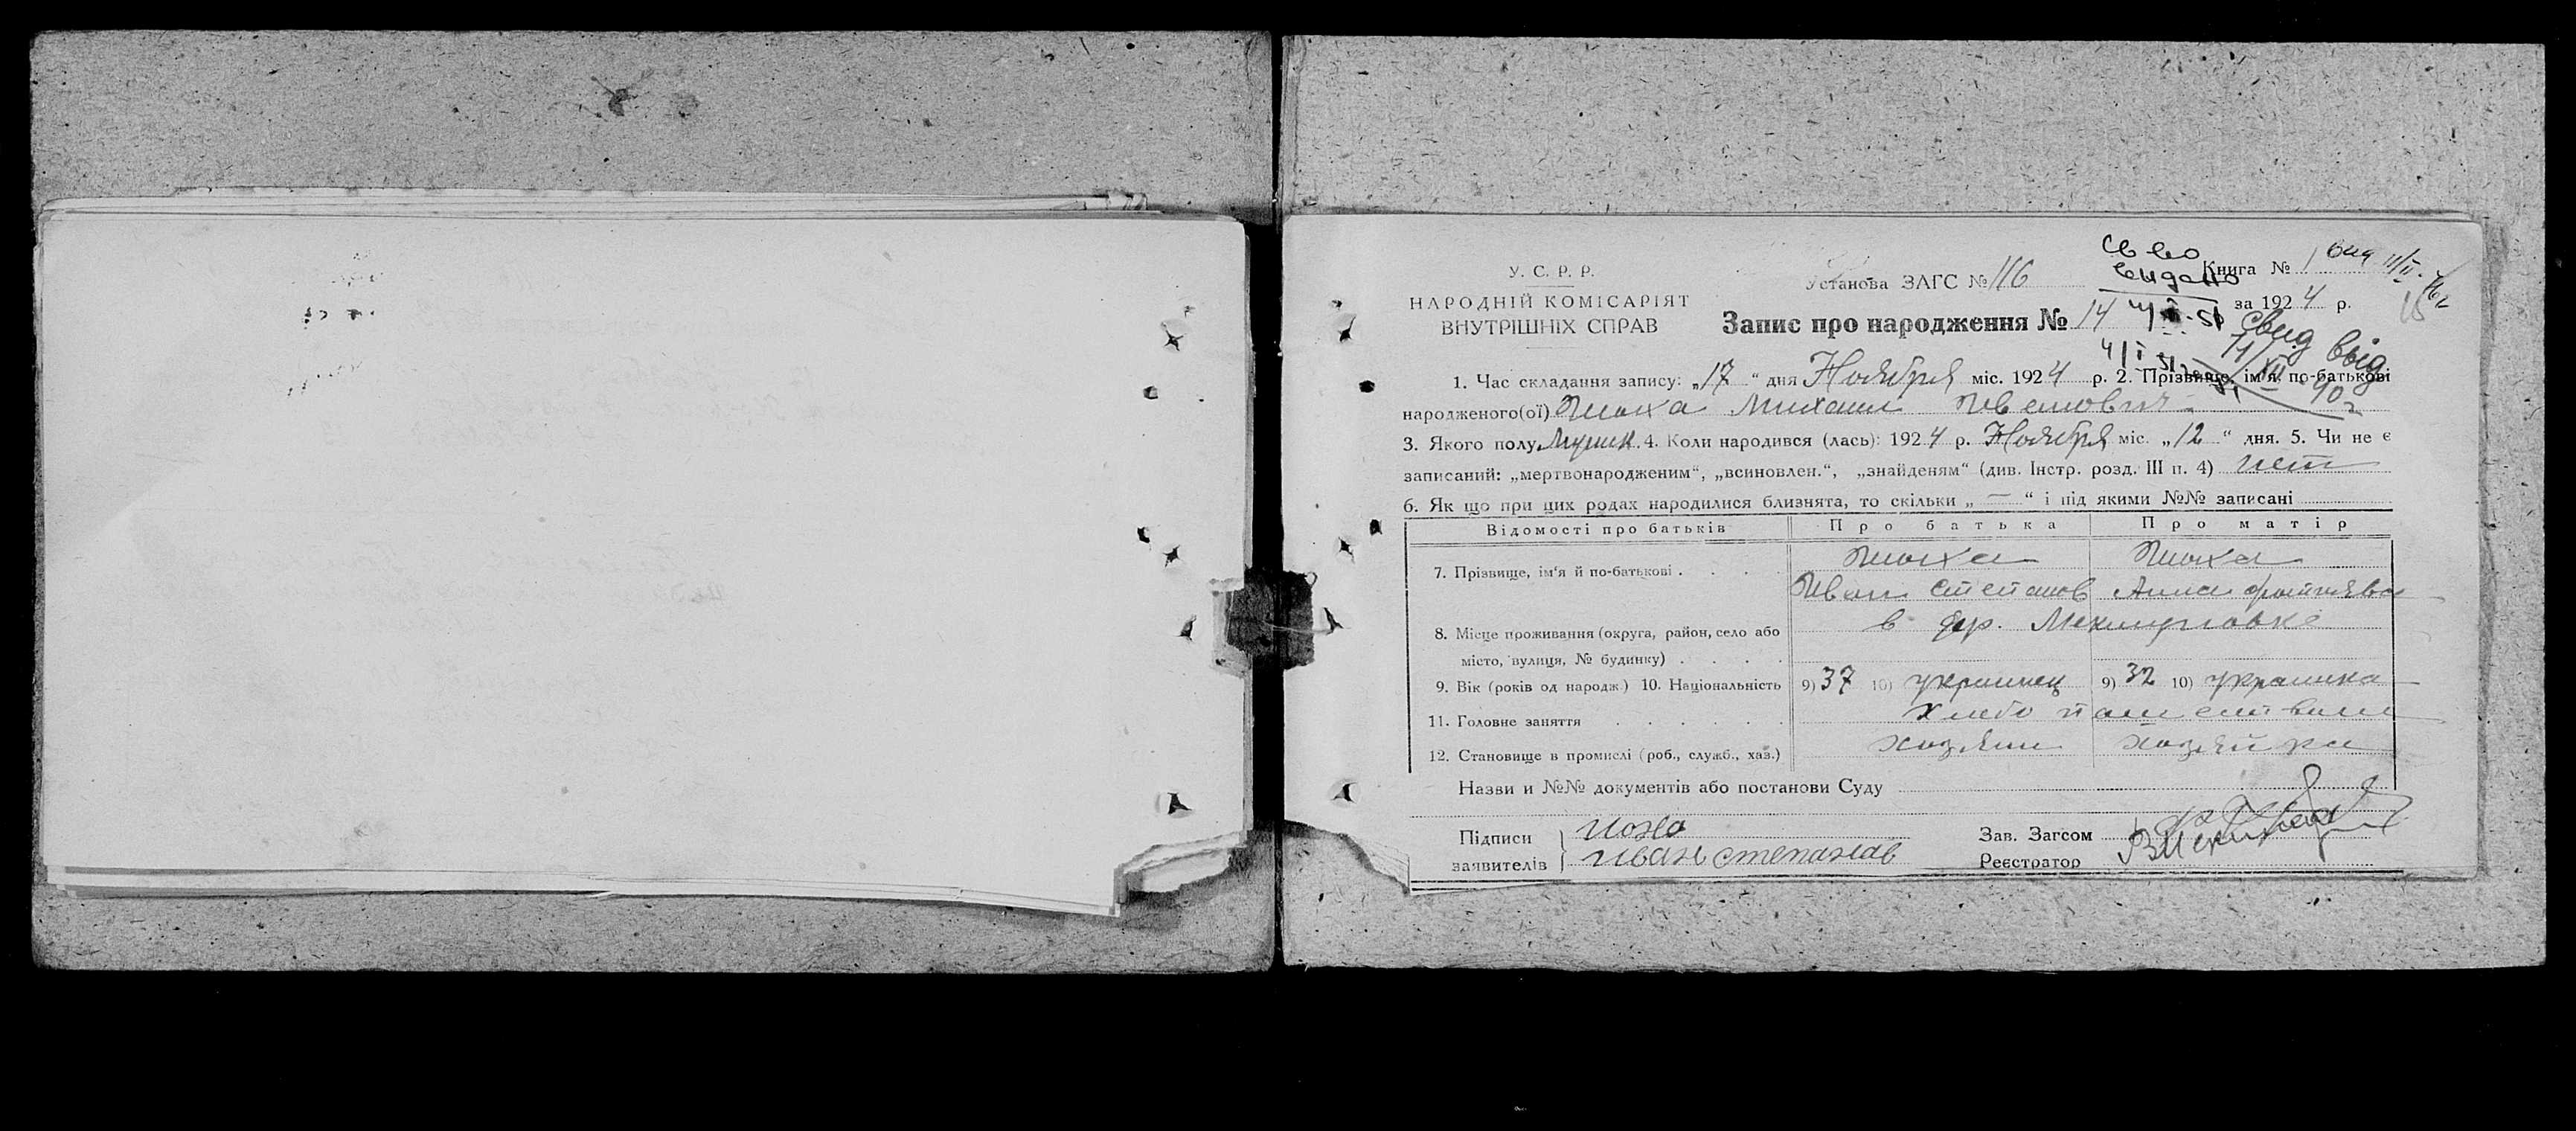 У. С. Р. Р.
НАРОДНІЙ КОМІСАРІЯТ
ВНУТРІШНІХ СПРАВ
Установа ЗАГС № 116
Св во
выдано
Книга № 1
за 1924 р.
Запис про народження № 14
4/I-51
свид выд
11/XII-90г
1. Час складання запису: „17“ дня Ноября міс. 1924 р. 2. Прізвище, ім'я, по-батькові
народженого(ої) Михаил Иванович
3. Якого полу Мужск. 4. Коли народився (лась): 1924 р. Ноября міс. „12“ дня. 5. Чи не є
записаний: „мертвонародженим“, „всиновлен.“, „знайденям“ (див. Інстр. розд. III п. 4) нет
6. Як що при цих родах народилися близнята, то скільки „ — “ і під якими №№ записані
Відомості про батьків Про батька Про матір
7. Прізвище, ім'я й по-батькові . . . .
Иван Степанов Анна
8. Місце проживання (округа, район, село або в дер.
місто, вулиця, № будинку) . . . .
9. Вік (років од народж.) 10. Національність 9) 37 10) украинец 9) 32 10) украинка
11. Головне заняття . . . . . хлебопашество
12. Становище в промислі (роб., служб., хаз.) хозяин хозяйка
Назви и №№ документів або постанови Суду
Підписи
заявителів Иван Степанов
Зав. Загсом
Реєстратор